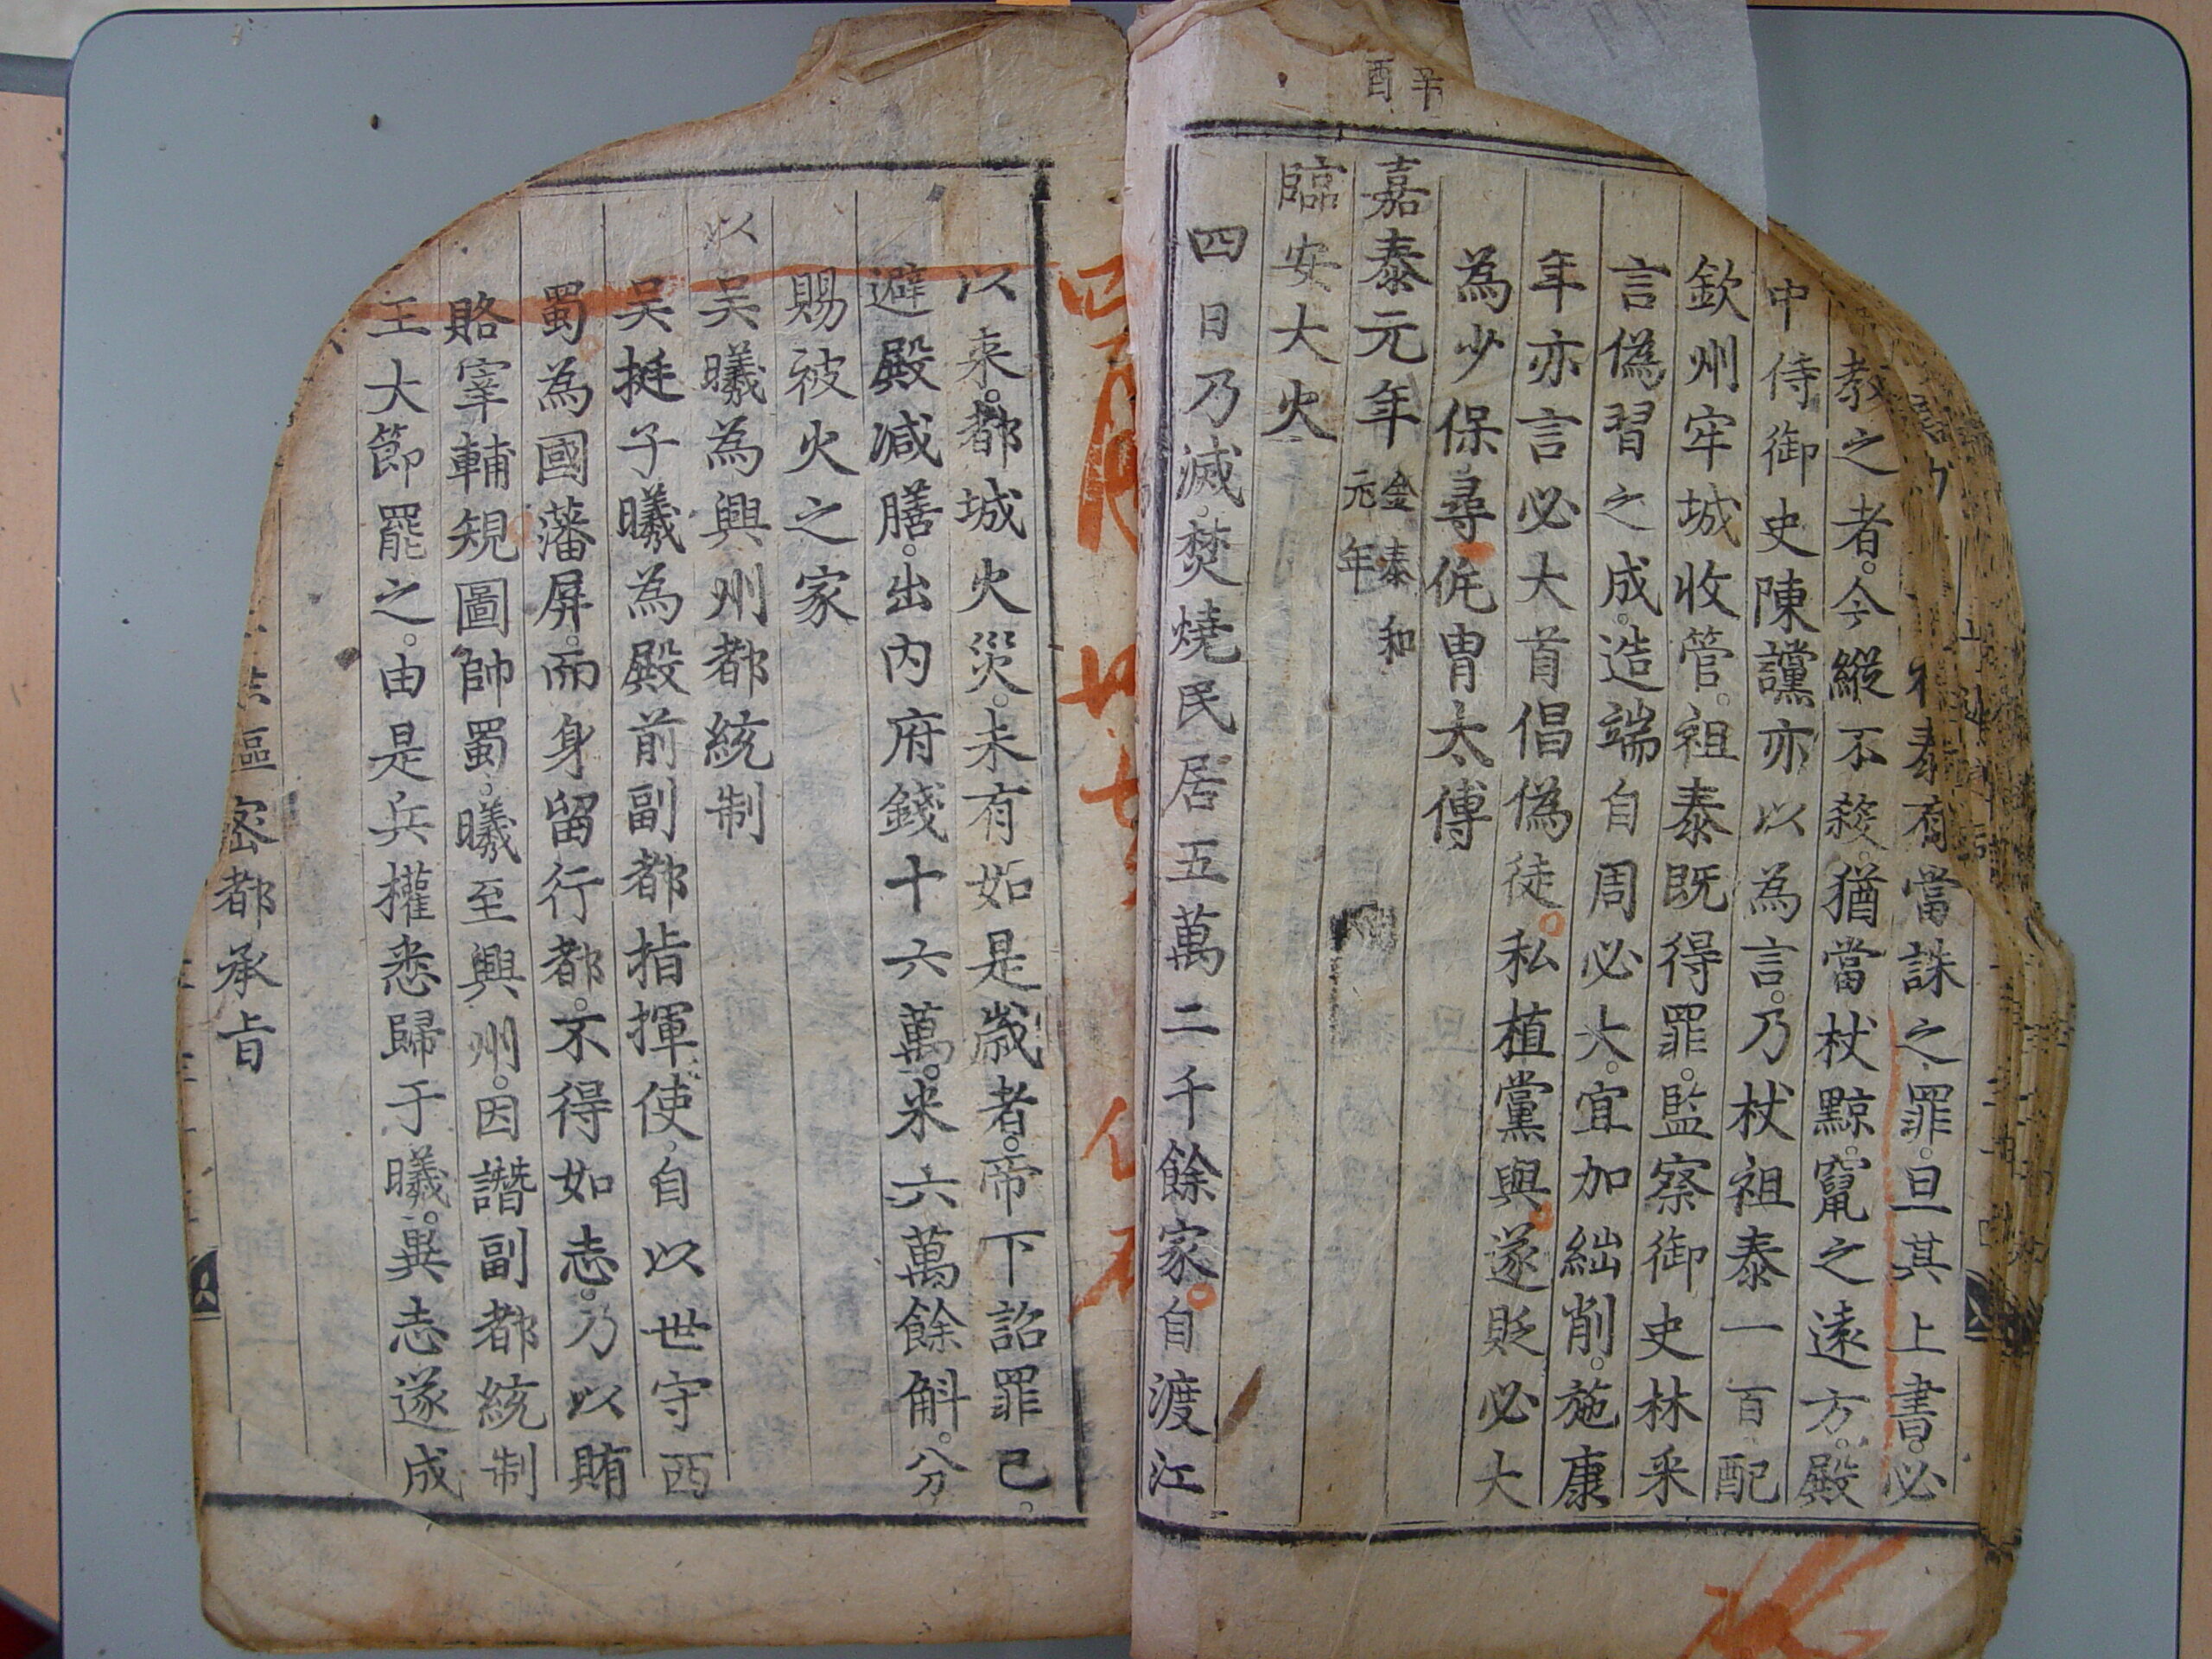 辛酉
祖泰有當誅之罪。且其上書。必
教之者。今縱不殺。猶當杖黥。竄之遠方。殿
中侍御史陳讜亦以為言。乃杖祖泰一百配
欽州牢城收管。祖泰既得罪。監察御史林采
言偽習之成。造端自周必大。宜加絀削。施康
年亦言必大首倡偽徒。私植黨與。遂貶必大
為少保尋侂胄太傅
嘉泰元年 金泰和元年
臨安大火
四日乃滅。焚燒民居五萬二千餘家。自渡江
以来。都城火災。未有如是歲者。帝下詔罪己。
避殿減膳。出内府錢十六萬。米六萬餘斛。分
賜被火之家
以吳曦為興州都統制
吳挺子曦為殿前副都指揮使。自以世守西
蜀為國藩屏。而身留行都。不得如志。乃以賄
賂宰輔規圖帥蜀。曦至興州。因譖副都統制
王大節罷之。由是兵權悉歸于曦。異志遂成
樞密都承旨